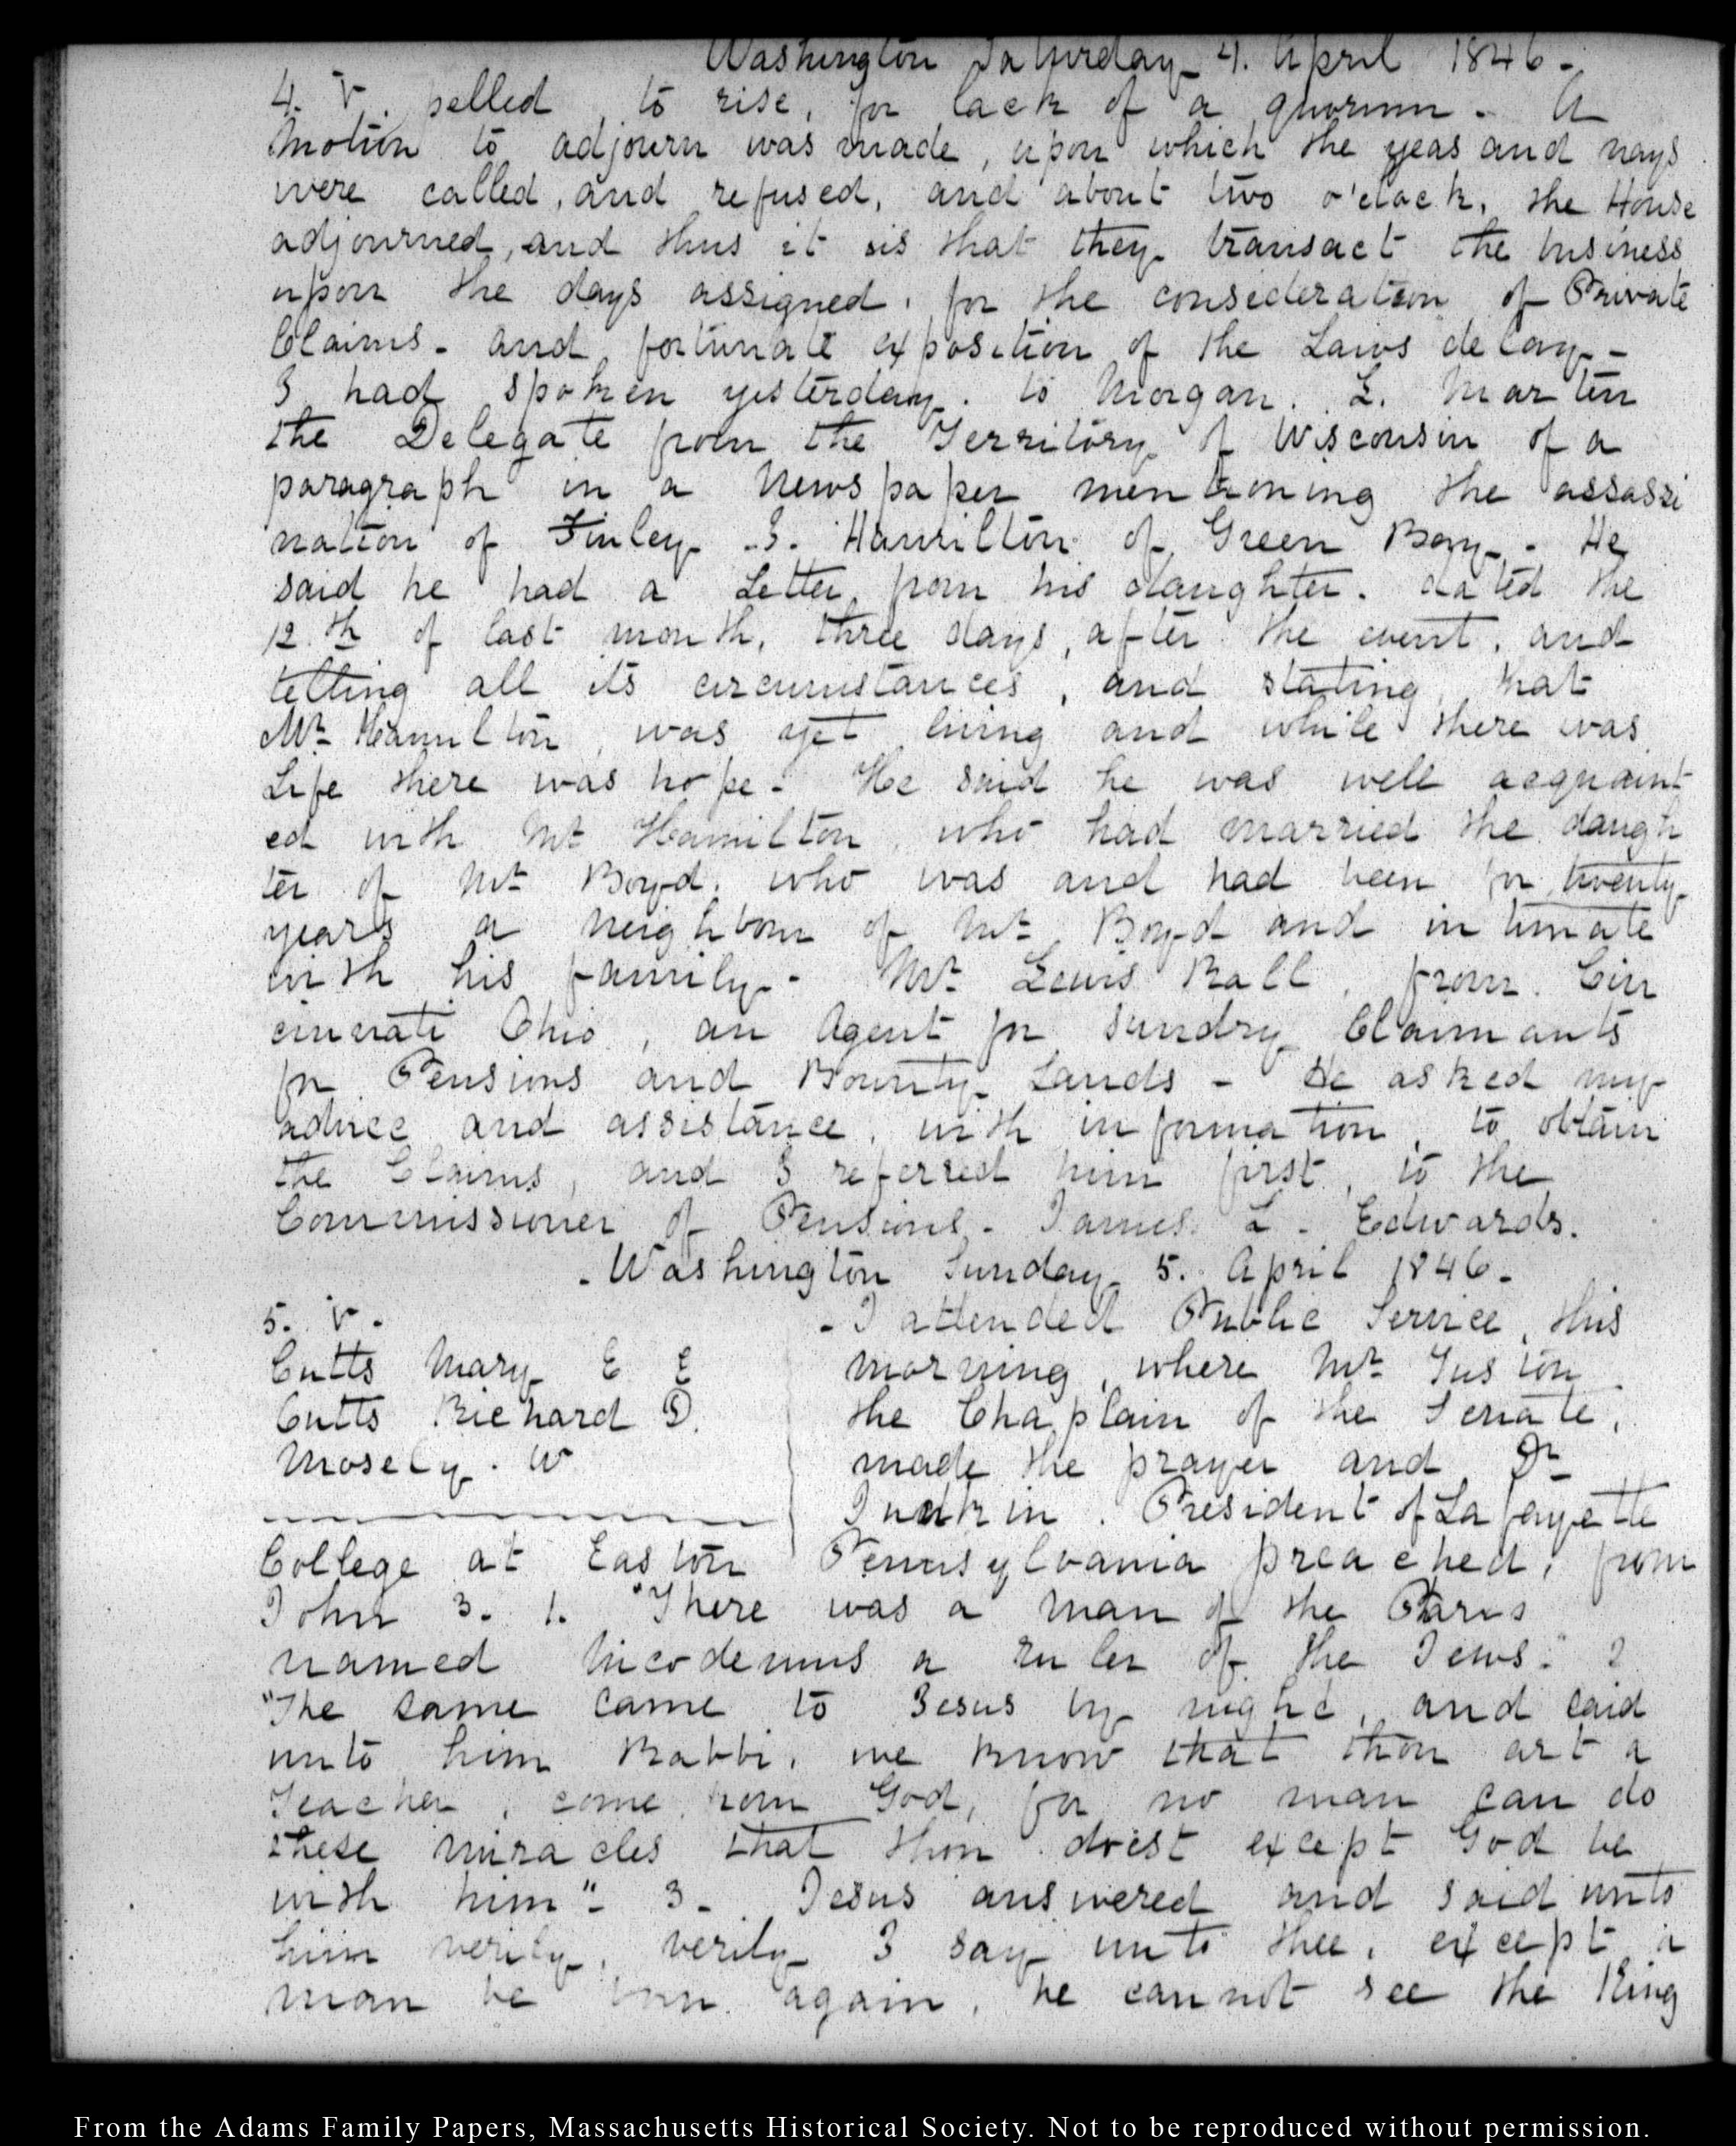 Washington Saturday 4. April 1846-
4. V. pelled, to rise, for lack of a quorum. A
motion to adjourn was made, upon which the yeas and nays
were called, and refused, and about two o'clock, the House
adjourned, and thus it is that they transact the business
upon the days assigned, for the consideration of Private
Claims- and fortunate exposition of the Laws delay-
I had spoken yesterday. to Morgan. L. Martin
the Delegate from the Territory of Wisconsin of a
paragraph in a Newspaper mentioning the assassi
nation of Finley S. Hamilton of Green Bay-. He
said he had a Letter, from his daughter. dated the
12.th of last month, three days, after the event, and
telling all its circumstances, and stating, that
Mr. Hamilton, was yet living and while there was
Life there was hope- He said he was well acquaint
ed with Mr Hamilton, who had married the daugh
ter of Mr Boyd, who was and had been for twenty
years a neighbour of Mr. Boyd and intimate
with his family- Mr. Lewis Ball, from Cin
cinnati Ohio, an Agent for sundry Claimants
for Pensions and Bounty Lands- He asked my
advice and assistance, with information, to obtain
the Claims, and I referred him first, to the
Commissioner of Pensions- James L. Edwards.
-Washington Sunday 5. April 1846-
5. V.
Cutts Mary E E
Cutts Richard D.
Mosely. W
-I attended Public Service, this
morning, where Mr. Tuston
the Chaplain of the Senate,
made the prayer and Dr
Junkin. President of La fayette
College at Easton Pennsylvania preached, from
John 3. 1. "There was a man of the Paris
named Nicodemus a ruler of the Jews." 2
"The same came to Jesus by night, and said
unto him Rabbi, we know that thou art a
Teacher, come from God, for no man can do
these miracles that thou doest except God be
with him"- 3- Jesus answered and said unto
him verily, verily I say unto thee, except a
man be born again, he cannot see the King
From the Adams Family Papers, Massachusetts Historical Society. Not to be reproduced without permission.